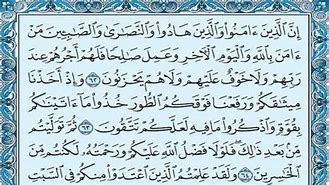 إِنَّ ٱلَّذِينَ ءَامَنُوا۟ وَٱلَّذِينَ هَادُوا۟ وَٱلنَّصَٰرَىٰ وَٱلصَّٰبِـِٔينَ مَنْ
ءَامَنَ بِٱللَّهِ وَٱلْيَوْمِ ٱلْءَاخِرِ وَعَمِلَ صَٰلِحًا فَلَهُمْ أَجْرُهُمْ عِندَ
رَبِّهِمْ وَلَا خَوْفٌ عَلَيْهِمْ وَلَا هُمْ يَحْزَنُونَ ٦٢ وَإِذْ أَخَذْنَا
مِيثَٰقَكُمْ وَرَفَعْنَا فَوْقَكُمُ ٱلطُّورَ خُذُوا۟ مَآ ءَاتَيْنَٰكُم
بِقُوَّةٍ وَٱذْكُرُوا۟ مَا فِيهِ لَعَلَّكُمْ تَتَّقُونَ ٦٣ ثُمَّ تَوَلَّيْتُم
مِّنۢ بَعْدِ ذَٰلِكَ فَلَوْلَا فَضْلُ ٱللَّهِ عَلَيْكُمْ وَرَحْمَتُهُۥ لَكُنتُم مِّنَ
ٱلْخَٰسِرِينَ ٦٤ وَلَقَدْ عَلِمْتُمُ ٱلَّذِينَ ٱعْتَدَوْا۟ مِنكُمْ فِى ٱلسَّبْتِ